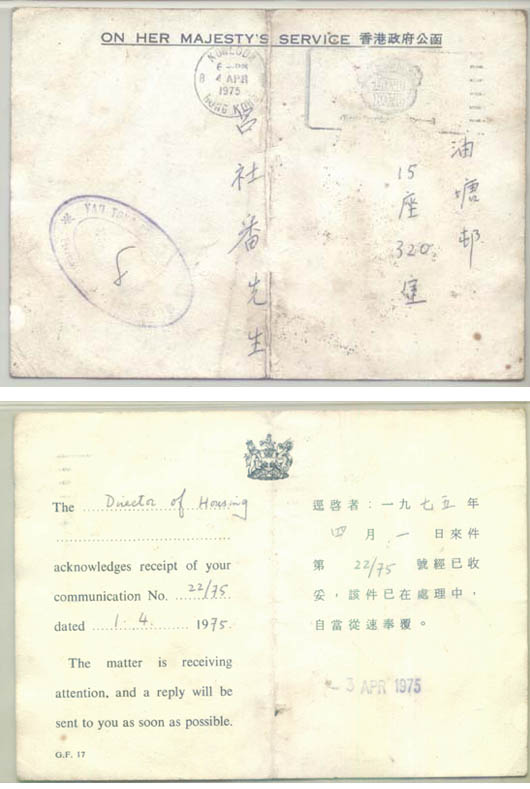 ON HER MAJESTY'S SERVICE 香港政府公函
KOWLOON
6-PM
8 4 APR
1975
HONG KONG
油塘邨
15座320室
宮社番先生
YAU TONG
8
The Director of Housing
acknowledges receipt of your
communication No. 22/75
dated 1. 4. 1975.
The matter is receiving
attention, and a reply will be
sent to you as soon as possible.
G.F. 17
逕啓者：一九七五年
四月一日來件
第 22/75 號經已收
妥，該件已在處理中，
自當從速奉覆。
- 3 APR 1975